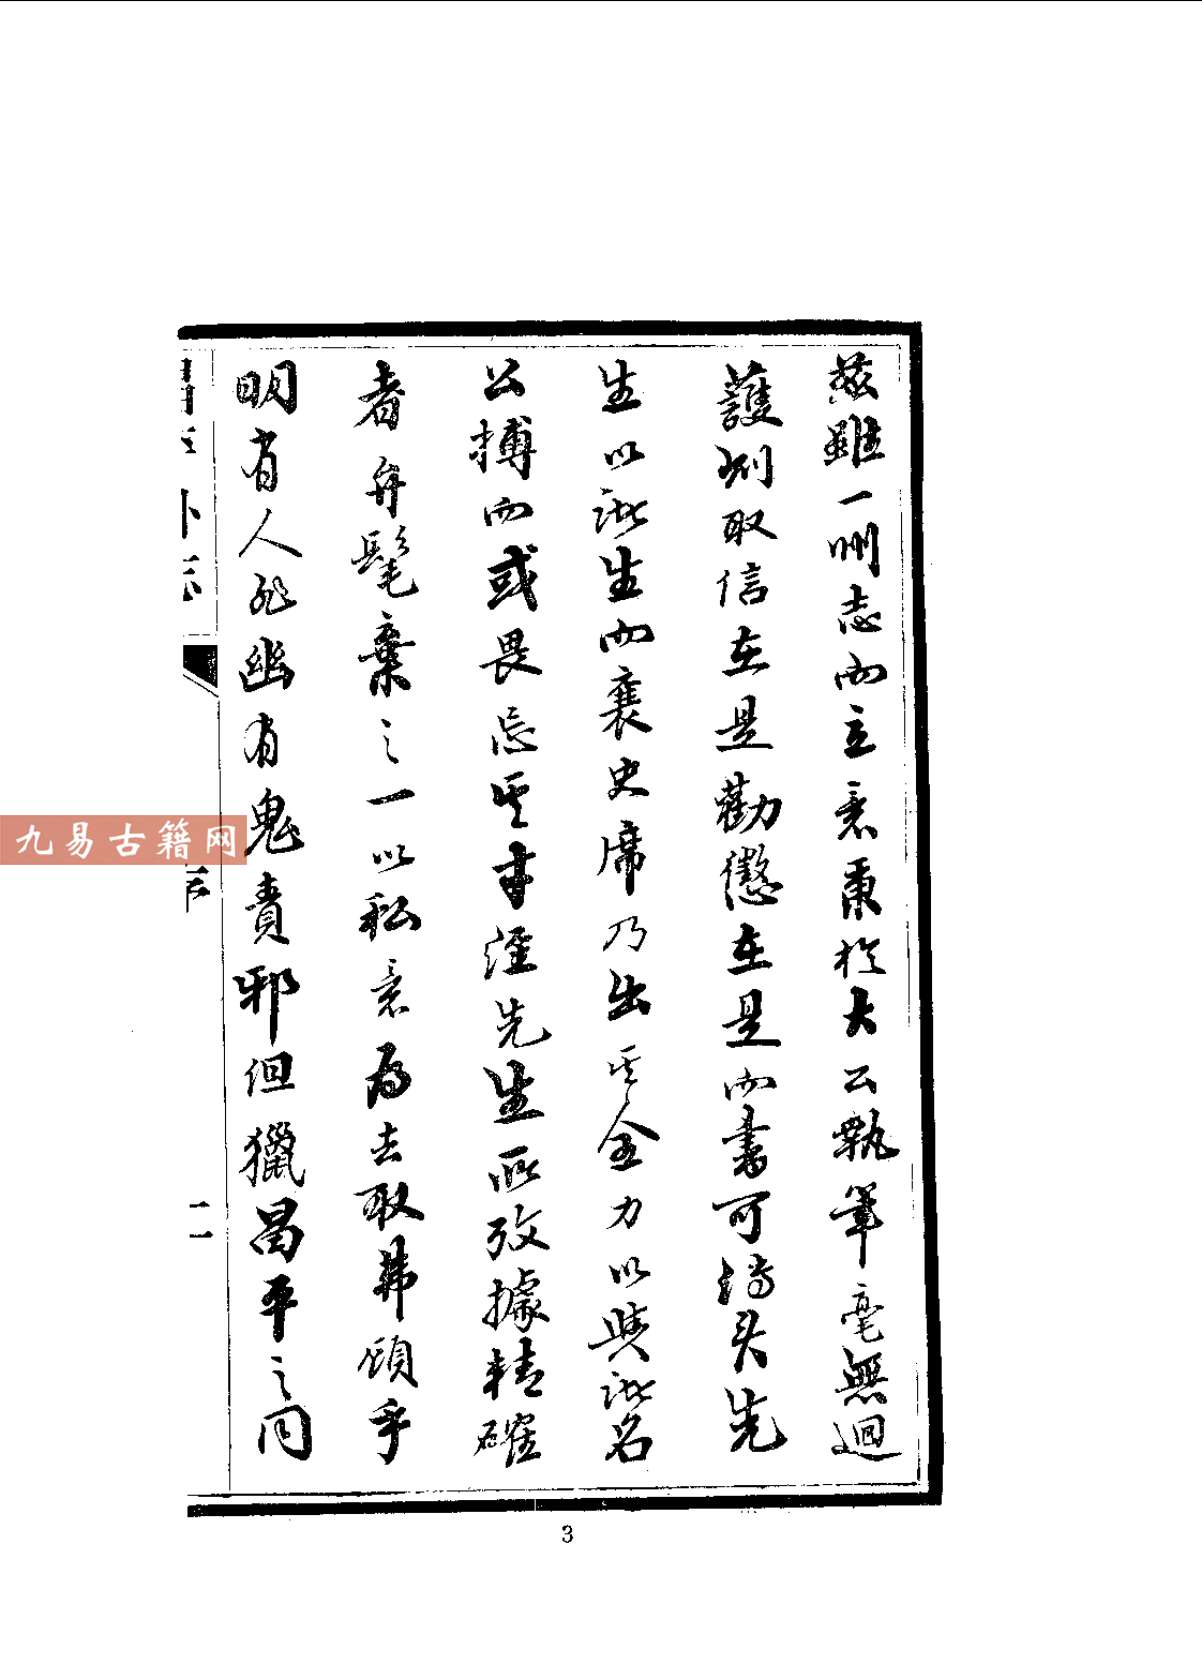 茲雖一州志而立意秉於大公執筆毫無迴
護則取信在是勸懲在是而書可傳矣先
生以誌生而襄史席乃出其全力以與誌名
公搏而或畏忌其才淫先生所攷據精確
者弁髦棄之一以私意為去取弗顧乎
明有人非幽有鬼責邪但獵昌平之同
二
九易古籍网
3